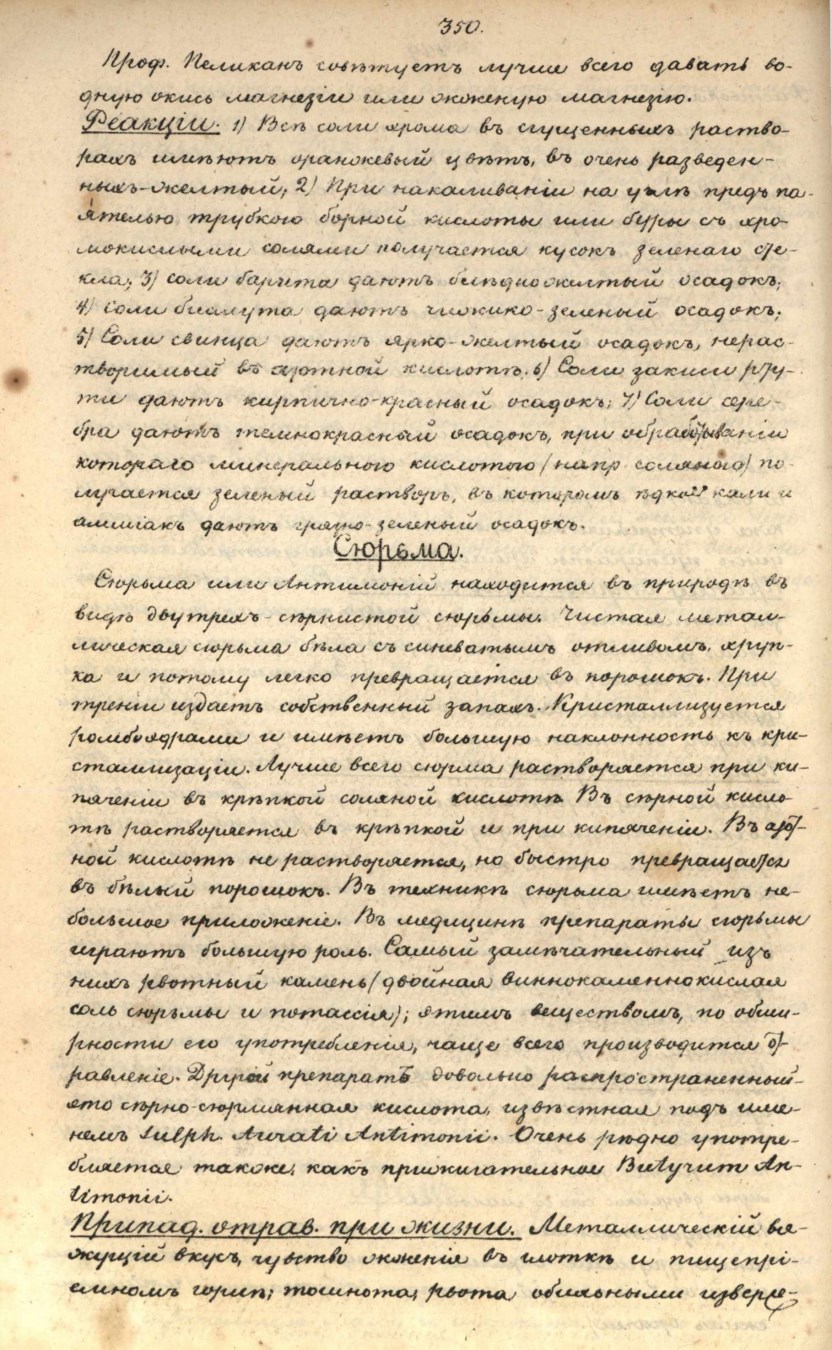 350.
Проф. Пеликанъ совѣтуетъ лучше всего давать во-
дную окись магнезіи или жженую магнезію.
Реакціи. 1) Всѣ соли хрома въ сгущенныхъ раство-
рахъ имѣютъ оранжевый цвѣтъ, въ очень разведен-
ныхъ-желтый; 2) При накаливаніи на углѣ предъ па-
ятелью трубкою борной кислоты или буры съ хро-
мокислыми солями получается кусокъ зеленаго сте-
кла; 3) соли барита даютъ блѣдножелтый осадокъ;
4) соли висмута даютъ чижико-зеленый осадокъ;
5) Соли свинца даютъ ярко-желтый осадокъ, нерас-
творимый въ азотной кислотѣ. 6) Соли закиси рту-
ти даютъ кирпично-красный осадокъ; 7) Соли сере-
бра даютъ темнокрасный осадокъ, при обработываніи
котораго минеральною кислотою (напр соляною) по-
лучается зеленый растворъ, въ которомъ ѣдкое кали и
амміакъ даютъ грязно-зеленый осадокъ.
Сюрьма.
Сюрьма или Антимоній находится въ природѣ въ
видѣ двутрехъ-сѣрнистой сюрьмы. Чистая метал-
лическая сюрьма бѣла съ синеватымъ отливомъ, хруп-
ка и потому легко превращается въ порошокъ. При
треніи издаетъ собственный запахъ. Кристаллизуется
ромбоэдрами и имѣетъ большую наклонность къ кри-
сталлизаціи. Лучше всего сюрма растворяется при ки-
пяченіи въ крѣпкой соляной кислотѣ. Въ сѣрной кисло-
тѣ растворяется въ крѣпкой и при кипяченіи. Въ азот-
ной кислотѣ не растворяется, но быстро превращается
въ бѣлый порошокъ. Въ техникѣ сюрьма имѣетъ не-
большое приложеніе. Въ медицинѣ препараты сюрьмы
играютъ большую роль. Самый замѣчательный изъ
нихъ рвотный камень (двойная виннокаменнокислая
соль сюрьмы и потассія); этимъ веществомъ, по обши-
рности его употребленія, чаще всего производится от-
равленіе. Другой препаратъ довольно распространенный-
это сѣрно-сюрмянная кислота, извѣстная подъ име-
немъ Sulph. Aurati Antimonii. Очень рѣдко употре-
бляется также, какъ прижигательное Butyrum An-
timonii.
Припад. отрав. при жизни. Металлическій вя-
жущій вкусъ, чувство жженія въ глоткѣ и пищепрі-
емномъ горлѣ; тошнота, рвота обильными изверже-